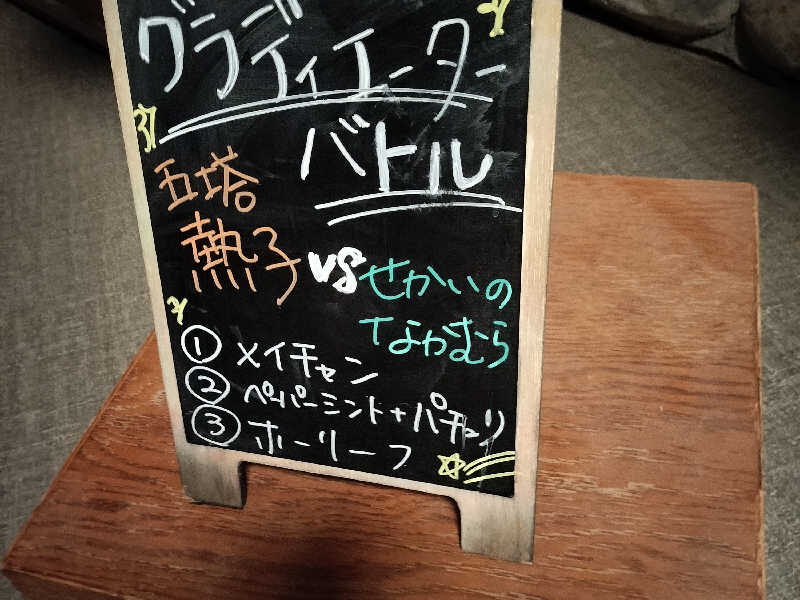 グラディエーター
バトル
五塔
熱子 VS せかいの
なかむら
① メイチャン
② ペパーミント+パチュリ
③ ホーリーフ